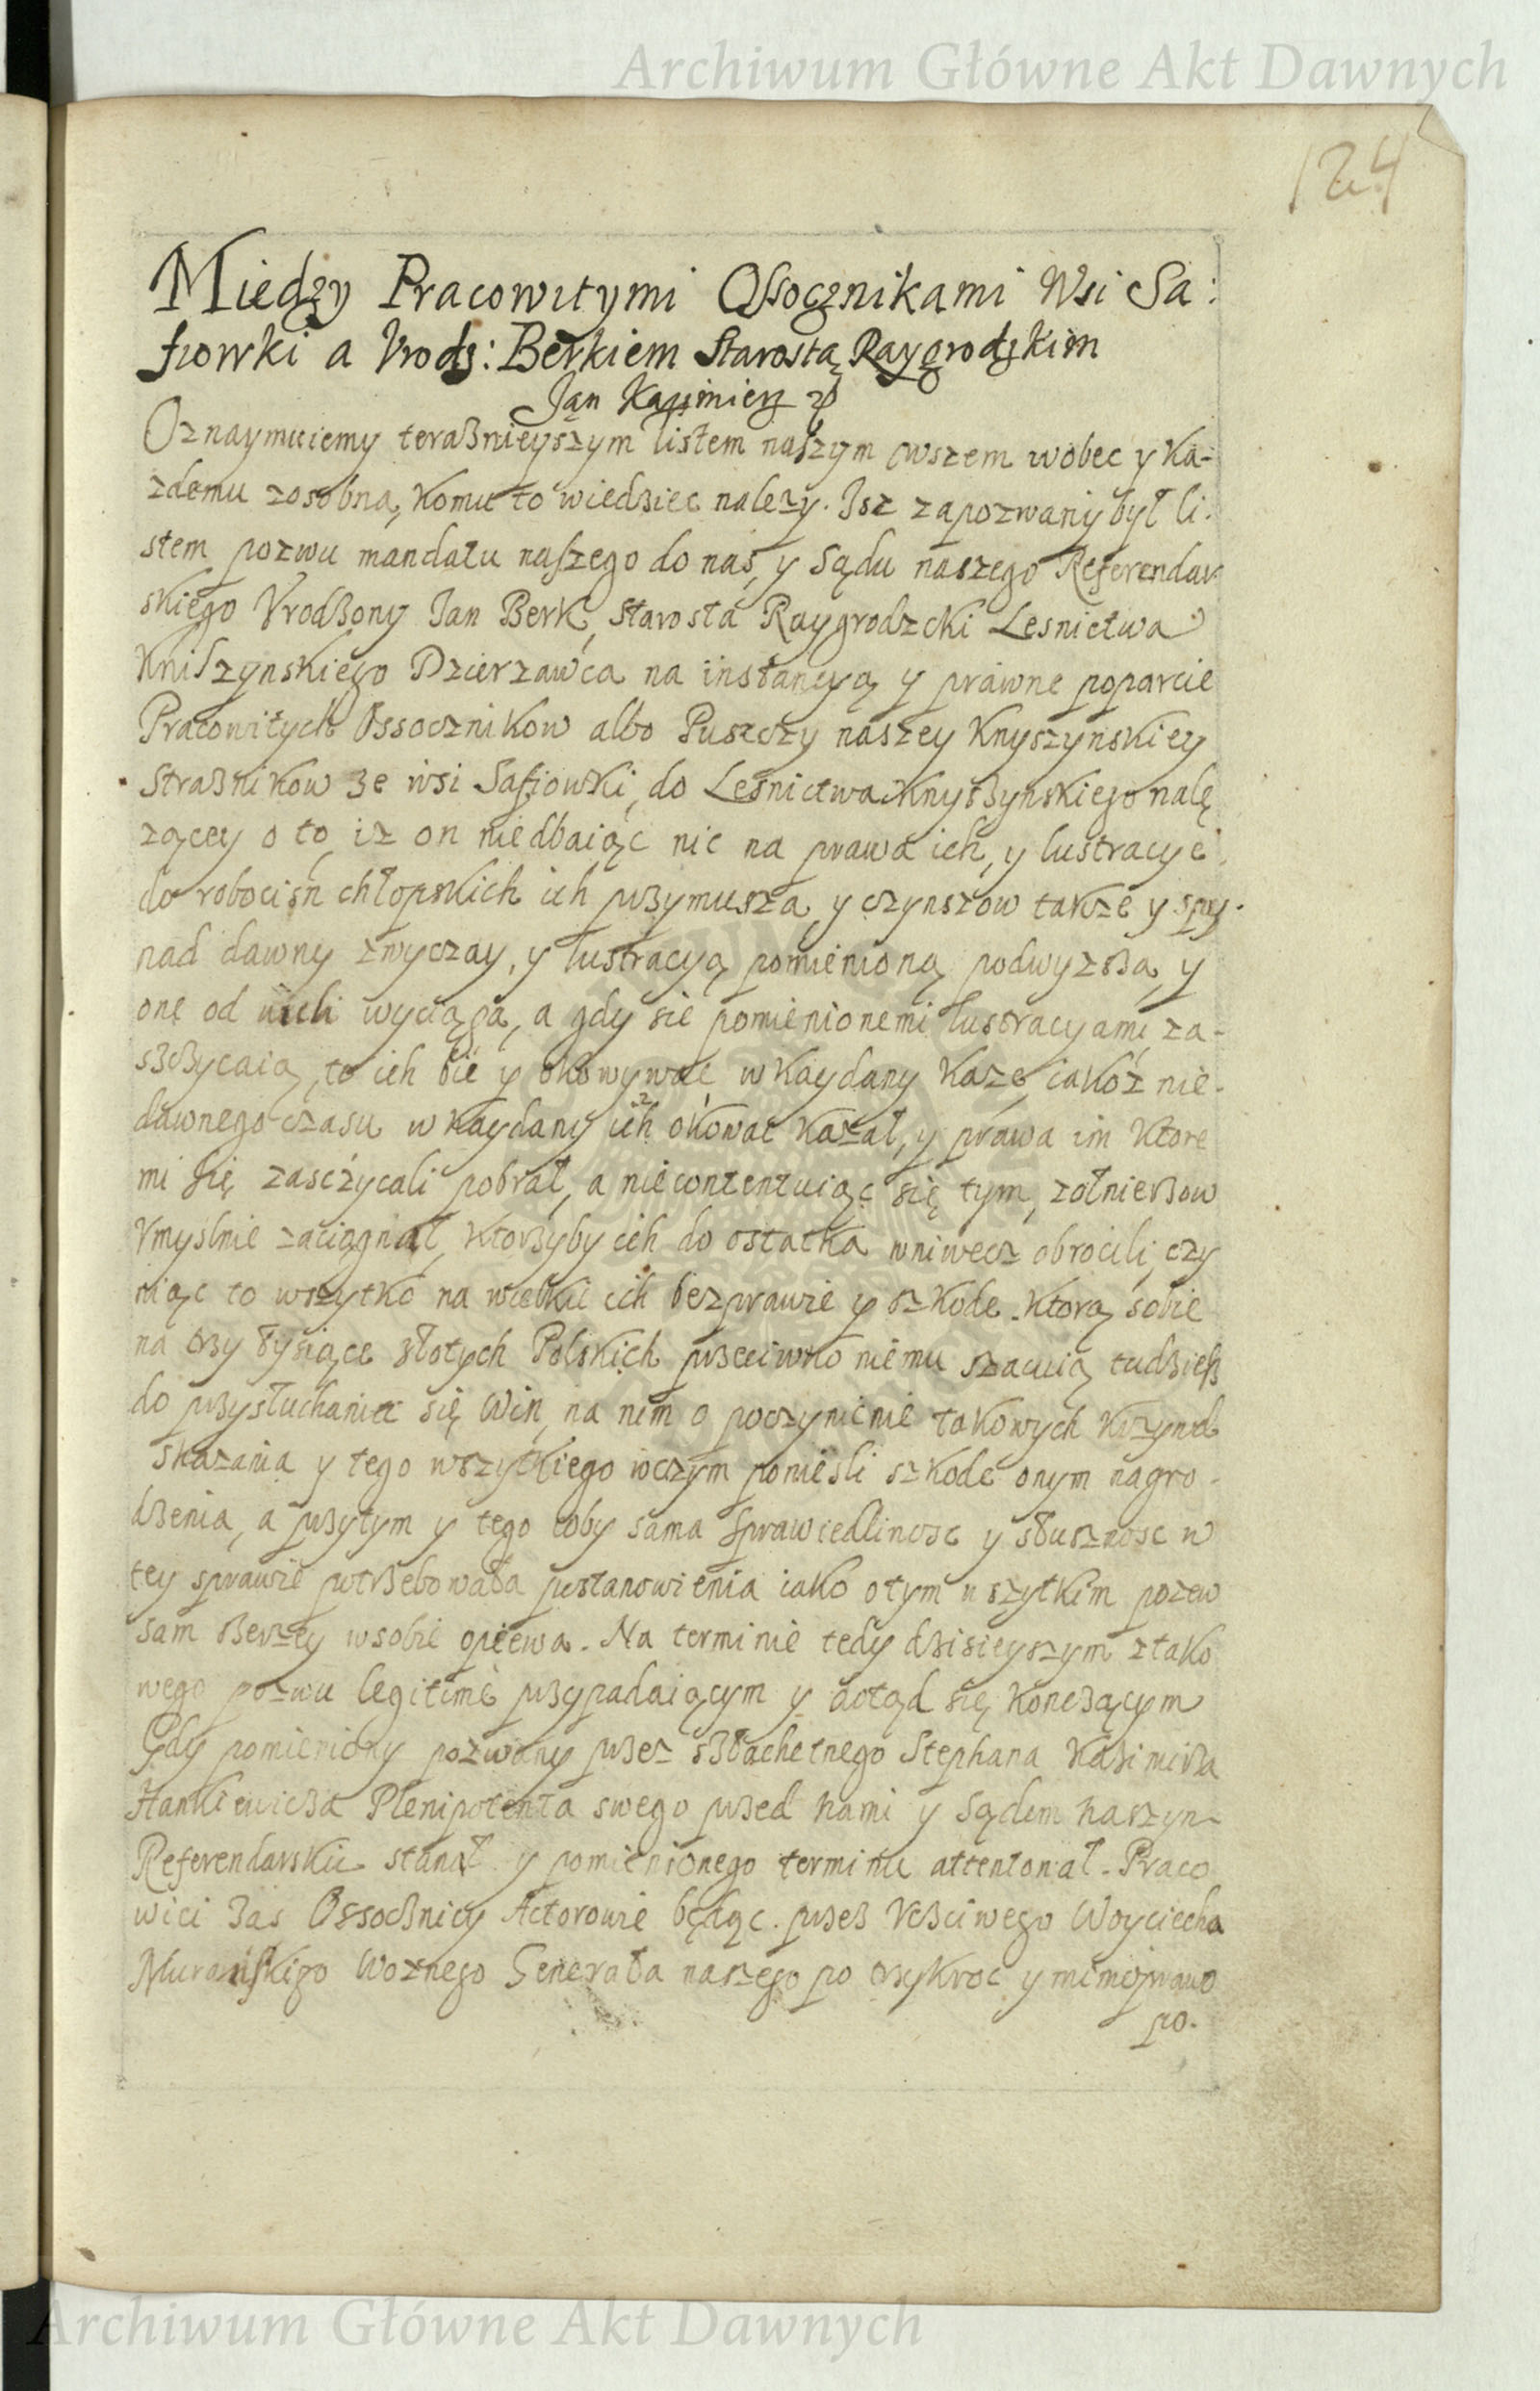 Archiwum Główne Akt Dawnych
124
Między Pracowitymi Ossocznikami Wsi Sa:
fiowki a Vrodz: Berkiem Starostą Raygrodzkim
Jan Kazimierz
Oznaymuiemy teraßnieyszym listem naszym owszem wobec y ka-
zdemu zosobna, komu to wiedziec nalezy. Isz zapozwany był li-
stem pozwu mandatu naszego do nas, y Sądu naszego Referendar
skiego Vrodzony Jan Berk, Starosta Raygrodzcki Lesnictwa
Kniszynskiego Dzierzawca na instancyą y prawne poparcie
Pracowitych Ossocznikow albo Puszczy naszey Knyszynskiey
Straznikow ze wsi Safiowki, do Lesnictwa Knyszynskiego nalę
zącey o to, iz on niedbaiąc nic na prawa ich, y lustracye
do robocizn chłopskich ich przymusza, y czynszow takze y spy.
nad dawny zwyczay, y lustracyą pomienioną podwyzsza, y
one od nich wyciąga, a gdy się pomienionemi lustracyami za-
szczycaią, to ich bie y okowywac w kaydany kaze, iakoz nie-
dawnego czasu w kaydany ich okowac kazał, y prawa im ktore
mi się zasczycali pobrał, a niecontentuiąc się tym, zołnierzow
Vmyslnie zaciągnął, ktorzyby ich do ostatka wniwecz obrocili, czy
niąc to wszytko na wielkie ich bezprawie y szkode. ktorą sobie
na trzy tysiące złotych Polskich przeciwko niemu szacuią tudziesz
do przysłuchania się Win, na nim o poczynienie takowych krzywd
skazania y tego wszytkiego wczym poniesli szkode onym nagro-
dzenia, a przytym y tego coby sama sprawiedliwosc y słusznosc w
tey sprawie potrzebowała postanowienia iako otym wszytkim pozew
sam szerzey wsobie opiewa. Na terminie tedy dzisieyszym z tako
wego pozwu legitime przypadaiącym y dotąd się konczącym
Gdy pomieniony pozwany przez szlachetnego Stephana Kazimirza
Hankiewicza Plenipotenta swego przed nami y Sądem naszym
Referendarskim stanął y pomienionego terminu attentował. Praco
wici zas Ossocznicy Actorowie będąc przez Vczciwego Woyciecha
Muranskigo Woznego Generała naszego po trzykroc y mimo prawo
po-
Archiwum Główne Akt Dawnych